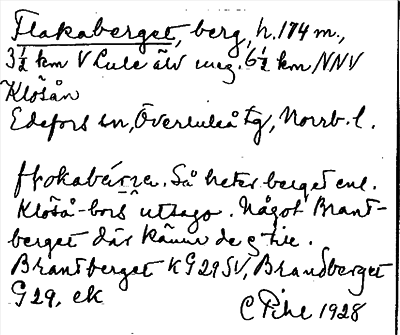 Flakaberget, berg, h. 174 m.,
3½ km V Lule älv meg. 6½ km NNV
Klösån
Edefors sn, Överluleå tg, Norrb. l.
Så heter berget enl.
Klöså-bors utsago. Något Brant-
berget där känner de ej till.
Brantberget KG29SV, Brandberget
G29, ek
C Pihl 1928